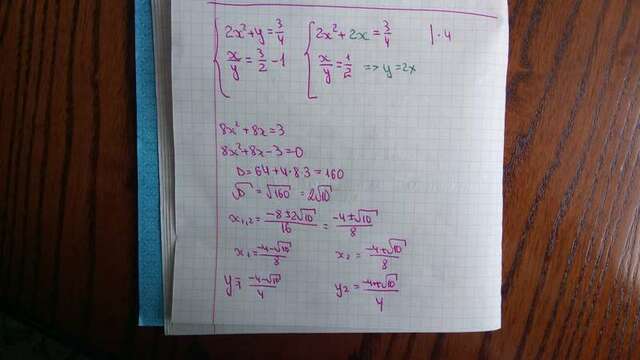 { 2x² + y = 3/4    { 2x² + 2x = 3/4   | ·4
{ x/y = 3/2 - 1    { x/y = 1/2  => y = 2x
8x² + 8x = 3
8x² + 8x - 3 = 0
D = 64 + 4·8·3 = 160
√D = √160 = 2√10
x₁,₂ = (-8 ± 2√10)/16 = (-4 ± √10)/8
x₁ = (-4-√10)/8    x₂ = (-4+√10)/8
y₁ = (-4-√10)/4    y₂ = (-4+√10)/4